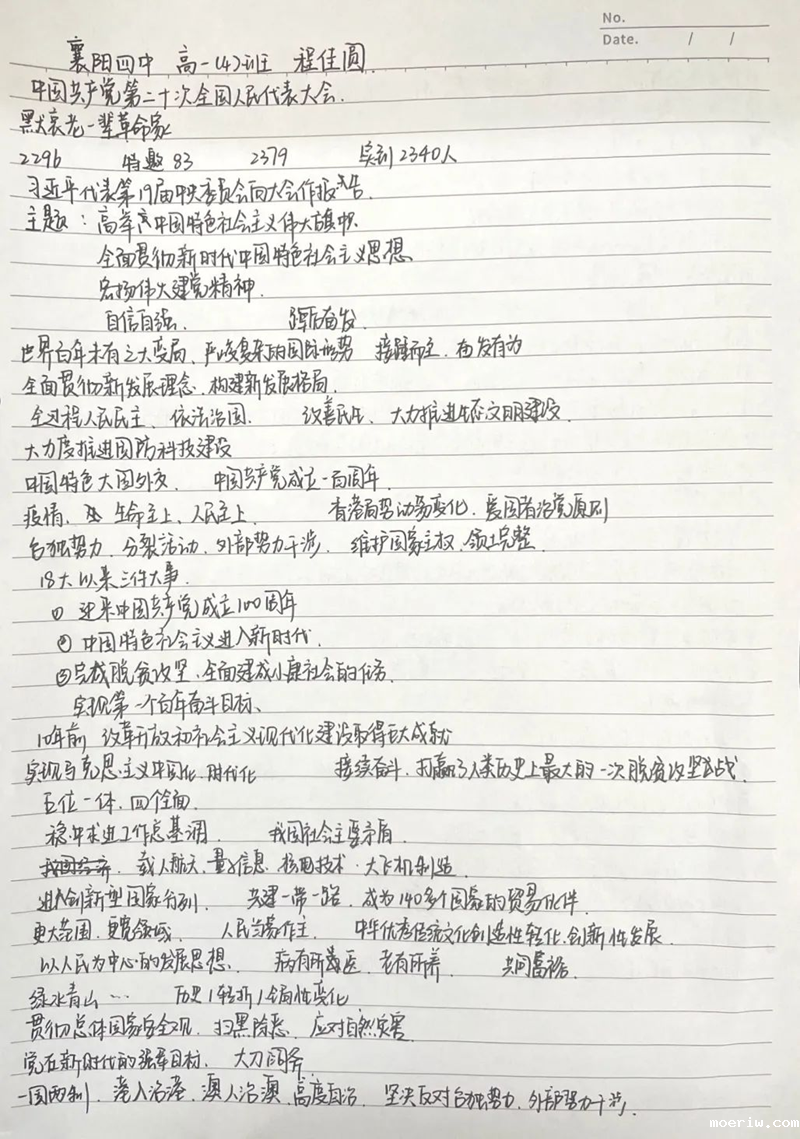 No.
Date. / /
襄阳四中 高一(4)班 程佳圆
中国共产党第二十次全国人民代表大会.
默哀老一辈革命家
2296 特邀83 2379 实到2340人
习近平代表第19届中央委员会向大会作报告.
主题: 高举中国特色社会主义伟大旗帜
全面贯彻新时代中国特色社会主义思想
弘扬伟大建党精神.
自信自强. 踔厉奋发.
世界百年未有之大变局、严峻复杂的国际形势 接踵而至. 奋发有为
全面贯彻新发展理念. 构建新发展格局.
全过程人民民主、依法治国. 改善民生、大力推进生态文明建设.
大力度推进国防科技建设
中国特色大国外交. 中国共产党成立一百周年.
疫情、生命至上、人民至上. 香港局势动荡变化. 爱国者治党原则
台独势力. 分裂活动. 外部势力干涉. 维护国家主权. 领土完整.
18大以来三件大事.
① 迎来中国共产党成立100周年
② 中国特色社会主义进入新时代.
③完成脱贫攻坚、全面建成小康社会的任务.
实现第一个百年奋斗目标、
10年前 改革开放和社会主义现代化建设取得巨大成就
实现马克思主义中国化. 时代化 接续奋斗. 打赢了人类历史上最大的一次脱贫攻坚战.
五位一体. 四个全面.
稳中求进工作总基调. 我国社会主要矛盾.
载人航天、量子信息. 核电技术. 大飞机制造.
进入创新型国家行列. 共建一带一路. 成为140多个国家的贸易伙伴.
更大范围. 更宽领域. 人民当家作主. 中华优秀传统文化创造性转化. 创新性发展.
以人民为中心的发展思想. 病有所医. 老有所养. 共同富裕.
绿水青山… 历史/转折/全局性变化
贯彻总体国家安全观. 扫黑除恶. 应对自然灾害
党在新时代的强军目标. 大刀阔斧.
一国两制、港人治港. 澳人治澳. 高度自治. 坚决反对台独势力. 外部势力干涉.
moeriw.com